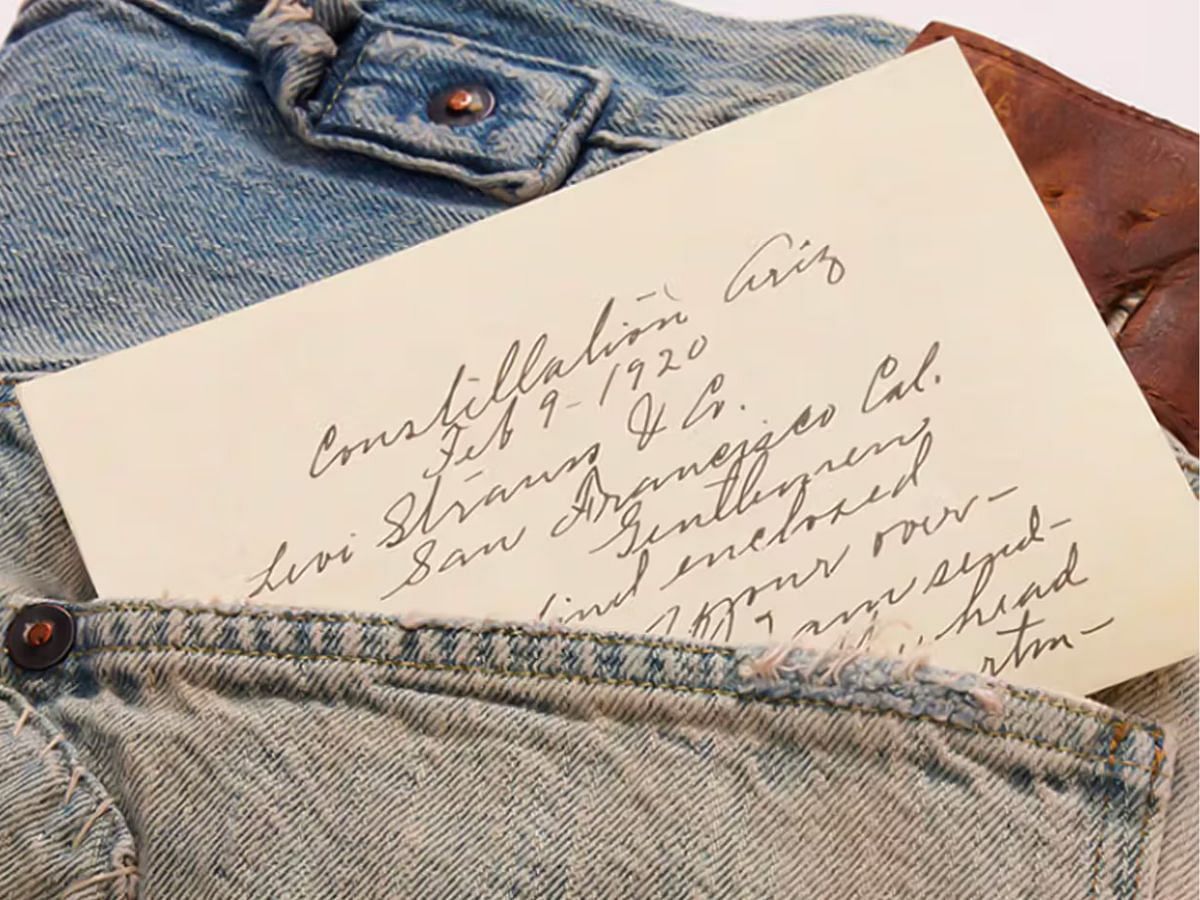 Constillation Ariz
Feb 9-1920
Levi Strauss & Co.
San Francisco Cal.
Gentlemen,
find enclosed
your over-
I am send-
head